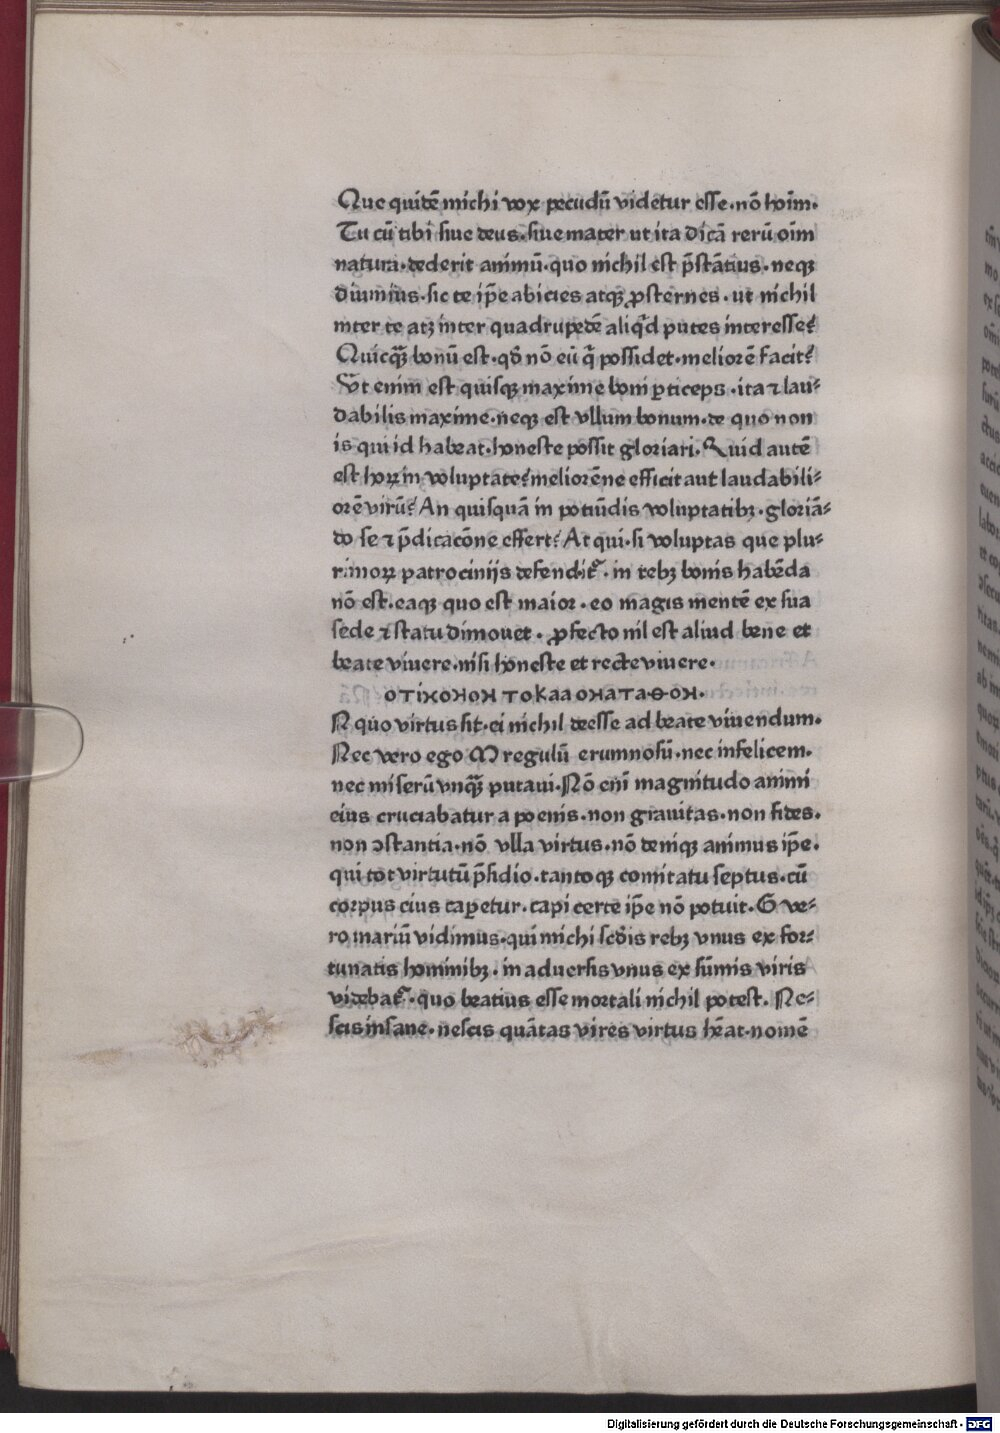 Que quidē michi vox pecudū videtur esse·nō hoīm·
Tu cū tibi siue deus·siue mater ut ita dicā rerū oīm
natura·dederit animū·quo nichil est p̄stātius·neqꝫ
diuinius·sic te ip̄e abicies atqꝫ ꝓsternes·ut nichil
inter te atꝫ inter quadrupedē aliq̇d putes interesse?
Quicqꝫ̄ bonū est·qd̄ nō eū q̇ possidet·meliorē facit?
Vt enim est quisqꝫ maxime boni ꝑticeps·ita ⁊ lau⸗
dabilis maxime·neqꝫ est vllum bonum·de quo non
is qui id habeat·honeste possit gloriari·Quid autē
est hoꝝ in voluptate?meliorēne efficit aut laudabili⸗
orē virū?An quisquā in potiūdis voluptatibꝫ·gloriā⸗
do se ⁊ p̄dicacōne effert?At qui·si voluptas que plu⸗
rimoꝝ patrocinijs defendit᷑·in rebꝫ bonis habēda
nō est·eaqꝫ quo est maior·eo magis mentē ex sua
sede ⁊ statu dimouet·ꝓfecto nil est aliud bene et
beate viuere·nisi honeste et recte viuere·
ΟΤΙΧΟΝΟΝ ΤΟΚΑΑ ΟΝΑΤΑΘΟΝ·
N quo virtus sit·ei nichil deesse ad beate viuendum·
Nec vero ego M regulū erumnosū·nec infelicem·
nec miserū vnqꝫ̄ putaui·Nō enī magnitudo animi
eius cruciabatur a poenis·non grauitas·non fides·
non ꝯstantia·nō vlla virtus·nō deniqꝫ animus ip̄e·
qui tot virtutū p̄sidio·tantoqꝫ comitatu septus·cū
corpus eius caꝑetur·capi certe ip̄e nō potuit·G ve⸗
ro mariū vidimus·qui michi scd̄is rebꝫ vnus ex for⸗
tunatis hominibꝫ·in aduersis vnus ex sūmis viris
videbat᷑·quo beatius esse mortali nichil potest·Ne⸗
scis insane·nescis quātas vires virtus hēat·nomē
Digitalisierung gefördert durch die Deutsche Forschungsgemeinschaft - DFG